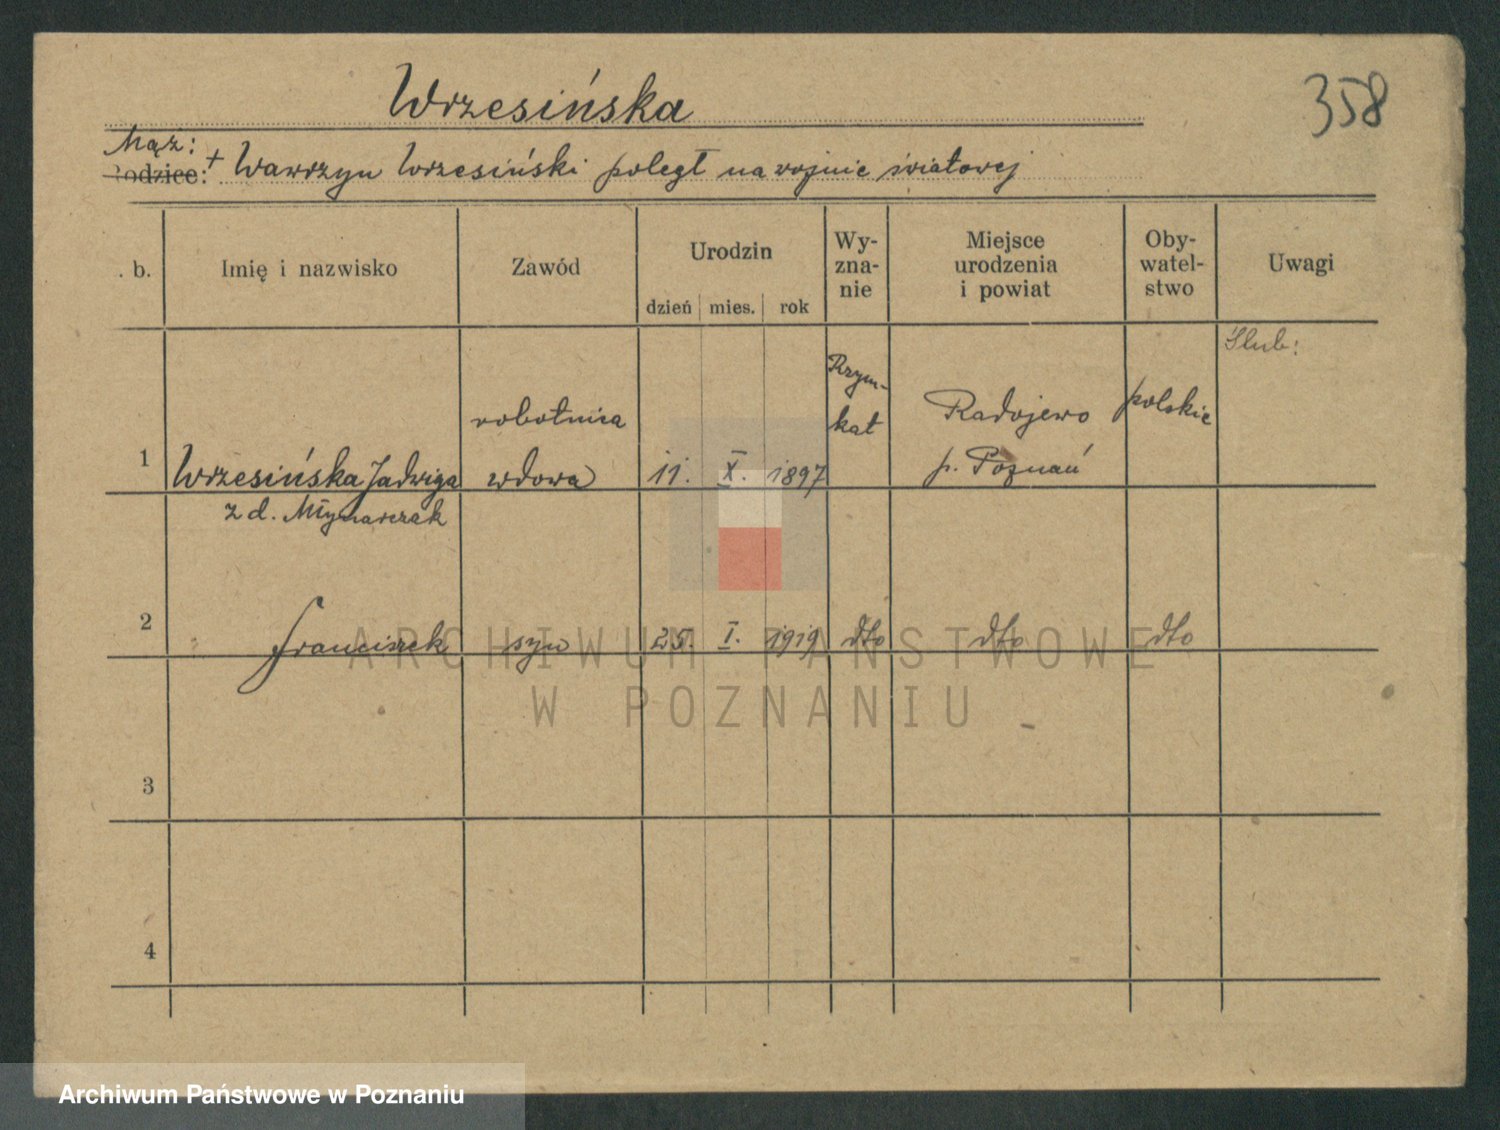 Wrzesińska
358
Mąż:
Rodzice: + Wawrzyn Wrzesiński poległ na wojnie światowej
. b.
Imię i nazwisko
Zawód
Urodzin
dzień mies. rok
Wy-
zna-
nie
Miejsce
urodzenia
i powiat
Oby-
watel-
stwo
Uwagi
Ślub:
1
Wrzesińska Jadwiga
z d. Młynarczak
robotnica
wdowa
11. X. 1897
Rzym-
kat
Radojewo
p. Poznań
polskie
2
Franciszek
syn
25. I. 1919
dto
dto
dto
3
4
ARCHIWUM PAŃSTWOWE
W POZNANIU
Archiwum Państwowe w Poznaniu